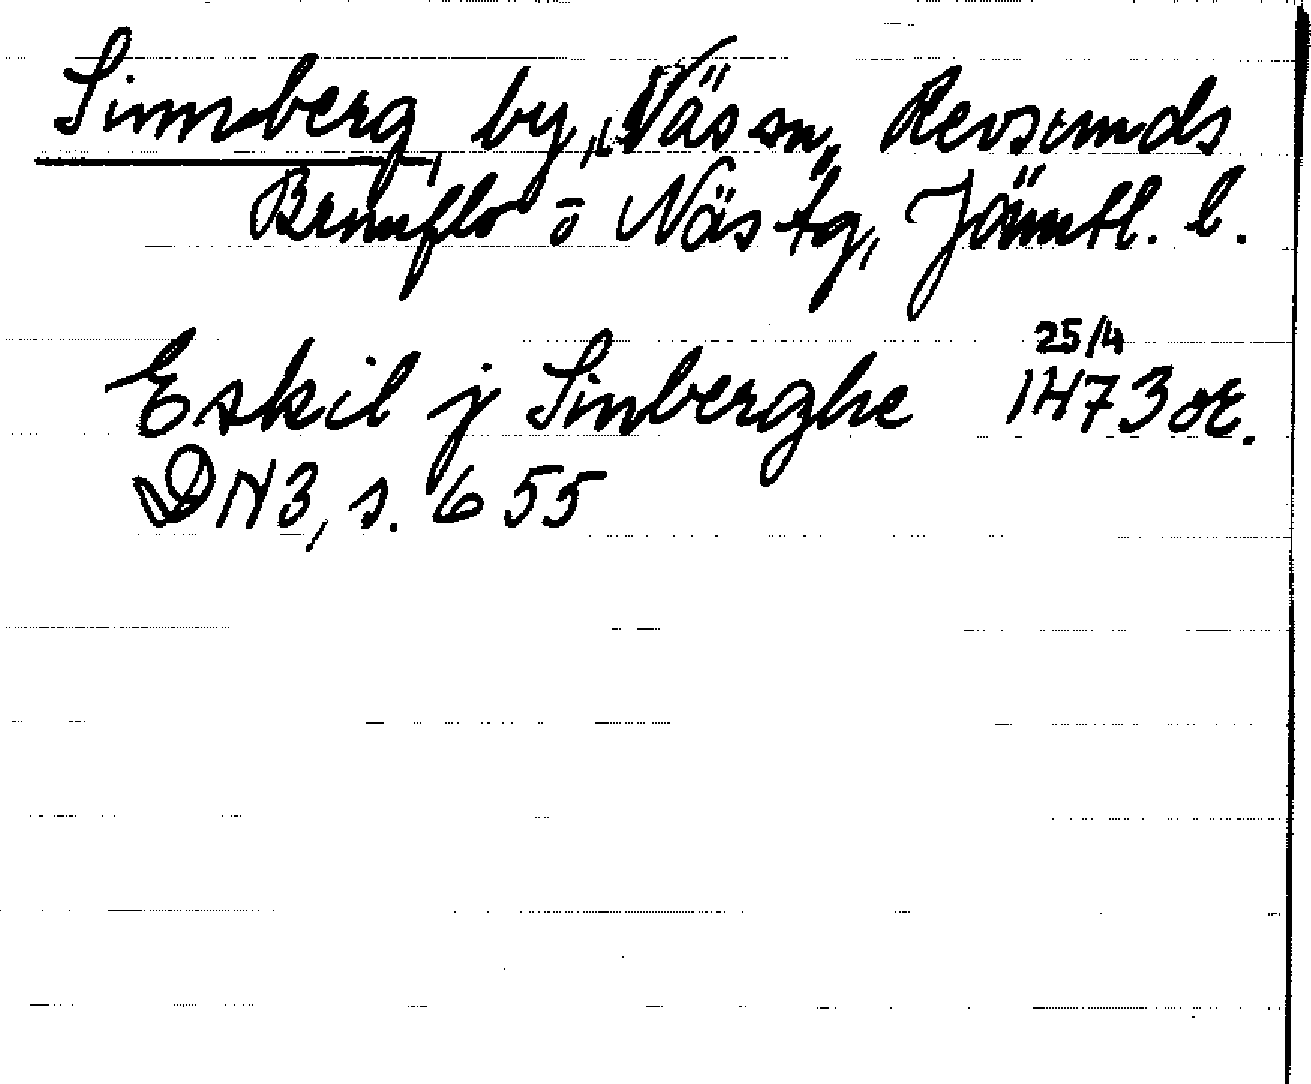 Sinnberg by, Näs sn, Revsunds
Brunflo o Näs tg, Jämtl. l.
Eskil j Sinberghe 25/4 1473 or.
DN 3, s. 655